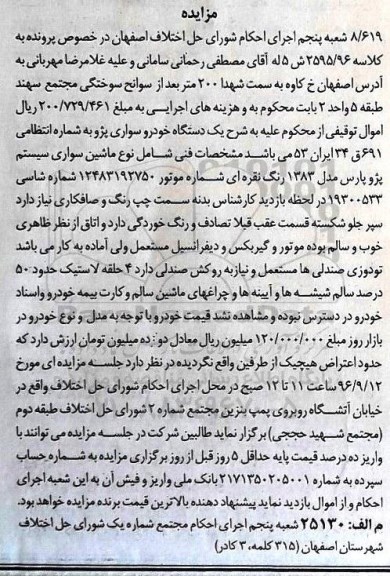 مزایده
۸/۶۱۹ شعبه پنجم اجرای احکام شورای حل اختلاف اصفهان در خصوص پرونده به
کلاسه ۲۵۹۵/۹۶ ش ۵ له آقای مصطفی رحمانی سامانی و علیه غلامرضا مهربانی به
آدرس اصفهان خ کاوه به سمت شهدا ۲۰۰ متر بعد از سوانح سوختگی مجتمع سهند
طبقه ۵ واحد ۲ بابت محکوم به و هزینه های اجرایی به مبلغ ۲۰۰/۷۲۹/۴۶۱ ریال
اموال توقیفی از محکوم علیه به شرح یک دستگاه خودرو سواری پژو به شماره انتظامی
۶۹۱ ق ۳۴ ایران ۵۳ می باشد مشخصات فنی شامل نوع ماشین سواری سیستم
پژو پارس مدل ۱۳۸۳ رنگ نقره ای شماره موتور ۱۲۴۸۳۱۹۲۷۵۰ شماره شاسی
۱۹۳۰۰۵۳۳ در لحظه بازدید کارشناس بدنه سمت چپ رنگ و صافکاری نیاز دارد
سپر جلو شکسته قسمت عقب قبلا تصادف و رنگ خوردگی دارد و اتاق از نظر ظاهری
خوب و سالم بوده موتور و گیربکس و دیفرانسیل مستعمل ولی آماده به کار می باشد
تودوزی صندلی ها مستعمل و نیاز به روکش صندلی دارد ۴ حلقه لاستیک حدود ۵۰
درصد سالم شیشه ها و آیینه ها و چراغهای ماشین سالم و کارت بیمه خودرو واسناد
خودرو در دسترس نبوده و مشاهده نشد قیمت خودرو با توجه به مدل و نوع خودرو در
بازار روز مبلغ ۱۲۰/۰۰۰/۰۰۰ میلیون ریال معادل دوازده میلیون تومان ارزش دارد که
حدود اعتراض هیچیک از طرفین واقع نگردیده در نظر دارد جلسه مزایده ای مورخ
۹۶/۹/۱۲ ساعت ۱۱ تا ۱۲ صبح در محل اجرای احکام شورای حل اختلاف واقع در
خیابان آتشگاه روبروی پمپ بنزین مجتمع شماره ۲ شورای حل اختلاف طبقه دوم
(مجتمع شهید حججی) برگزار نماید طالبین شرکت در جلسه مزایده می توانند با
واریز ده درصد قیمت پایه حداقل ۵ روز قبل از روز برگزاری مزایده به شماره حساب
سپرده به شماره ۲۱۷۱۳۵۰۲۰۵۰۰۱ بانک ملی واریز و فیش آن به این شعبه اجرای
احکام و از اموال بازدید نماید پیشنهاد دهنده بالاترین قیمت برنده مزایده خواهد بود.
م الف: ۲۵۱۳۰ شعبه پنجم اجرای احکام مجتمع شماره یک شورای حل اختلاف
شهرستان اصفهان (۳۱۵ کلمه، ۳ کادر)